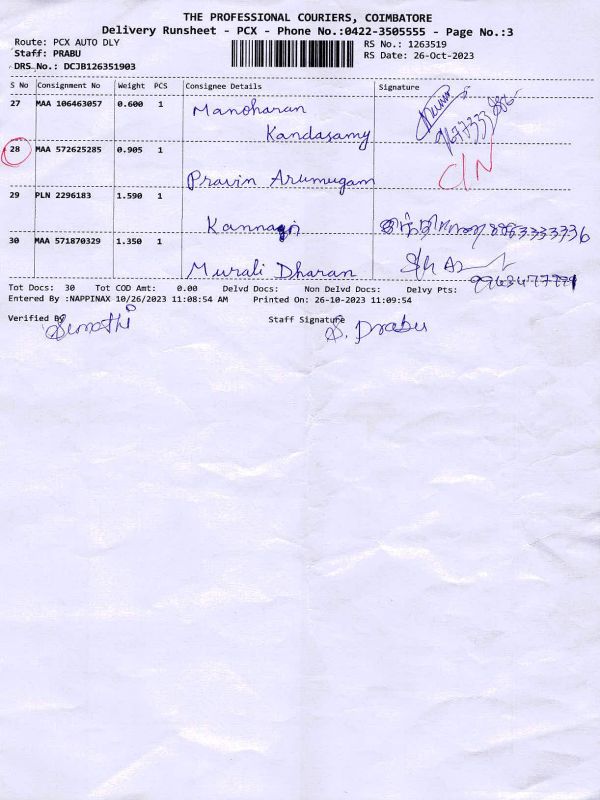 THE PROFESSIONAL COURIERS, COIMBATORE
Delivery Runsheet - PCX - Phone No.:0422-3505555 - Page No.:3
Route: PCX AUTO DLY RS No.: 1263519
Staff: PRABU RS Date: 26-Oct-2023
DRS No.: DCJB126351903
S No Consignment No Weight PCS Consignee Details Signature
27 MAA 106463057 0.600 1 Manoharan
Kandasamy
28 MAA 572625285 0.905 1 C/N
Pravin Arumugam
29 PLN 2296183 1.590 1
Kannagi
30 MAA 571870329 1.350 1
Murali Dharan
Tot Docs: 30 Tot COD Amt: 0.00 Delvd Docs: Non Delvd Docs: Delvy Pts:
Entered By :NAPPINAX 10/26/2023 11:08:54 AM Printed On: 26-10-2023 11:09:54
Verified By Staff Signature
S. Prabu